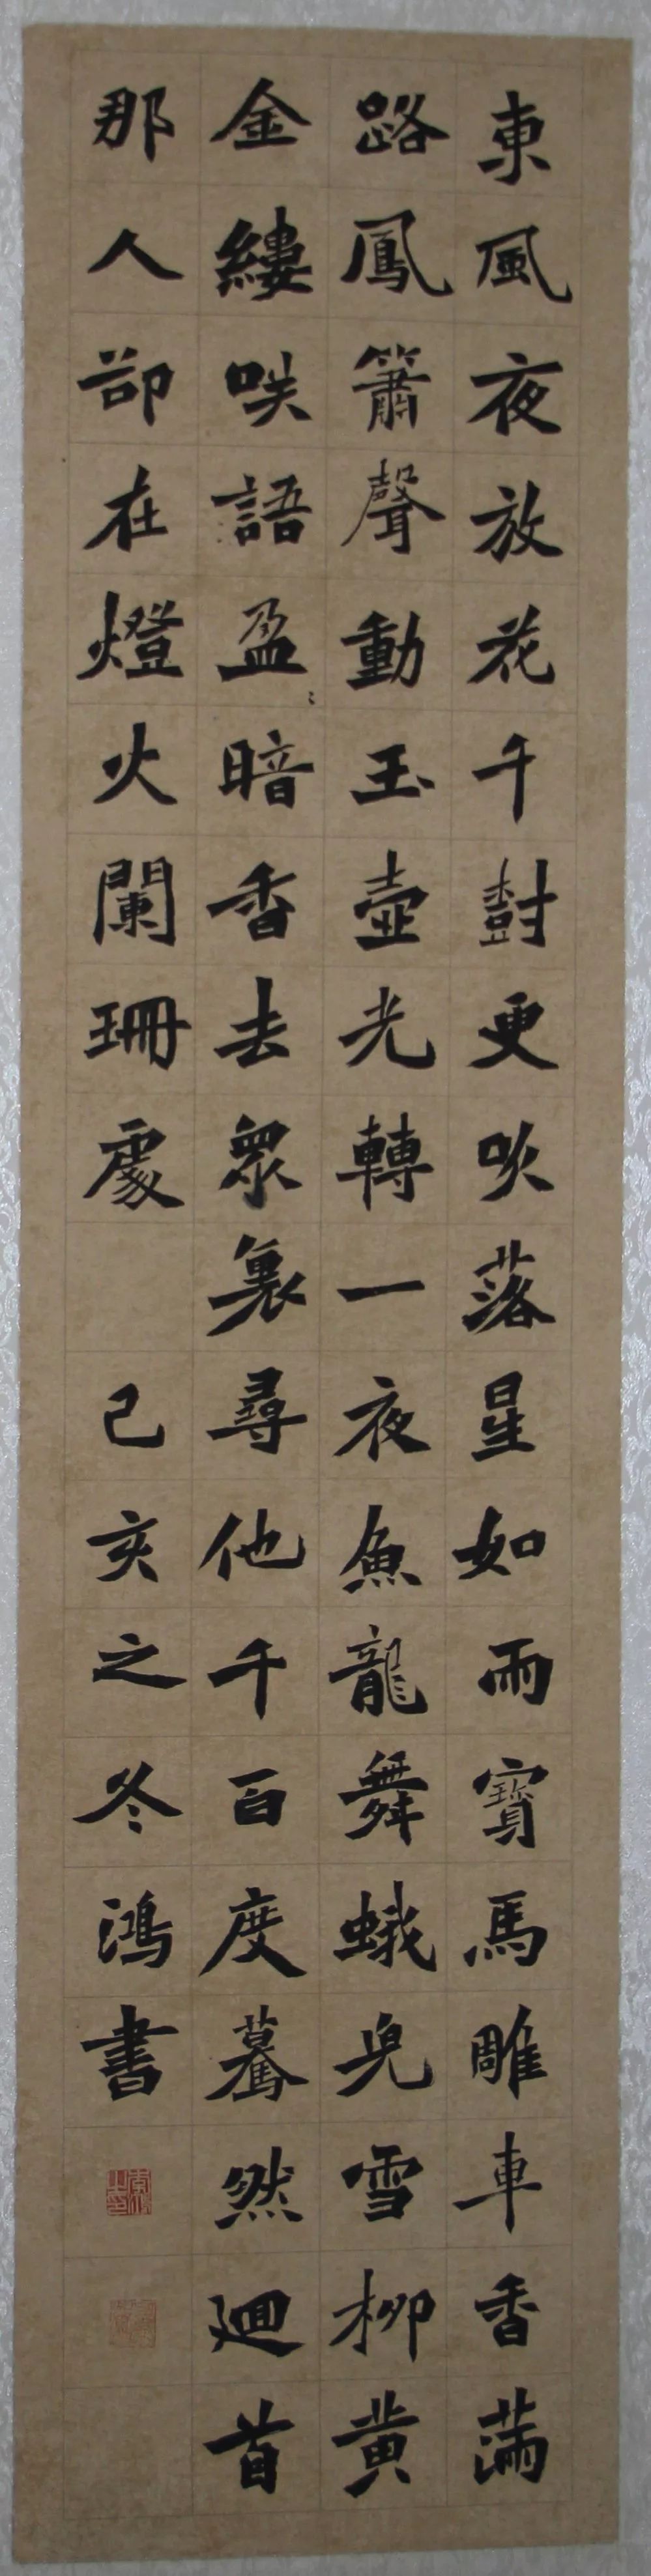 東風夜放花千尌更吹落星如雨寳馬雕車香滿
路鳳簫聲動玉壺光轉一夜魚龍舞蛾皃雪柳黄
金縷咲語盈〻暗香去衆裏尋他千百度驀然廻首
那人卻在燈火闌珊處
己亥之冬鴻書